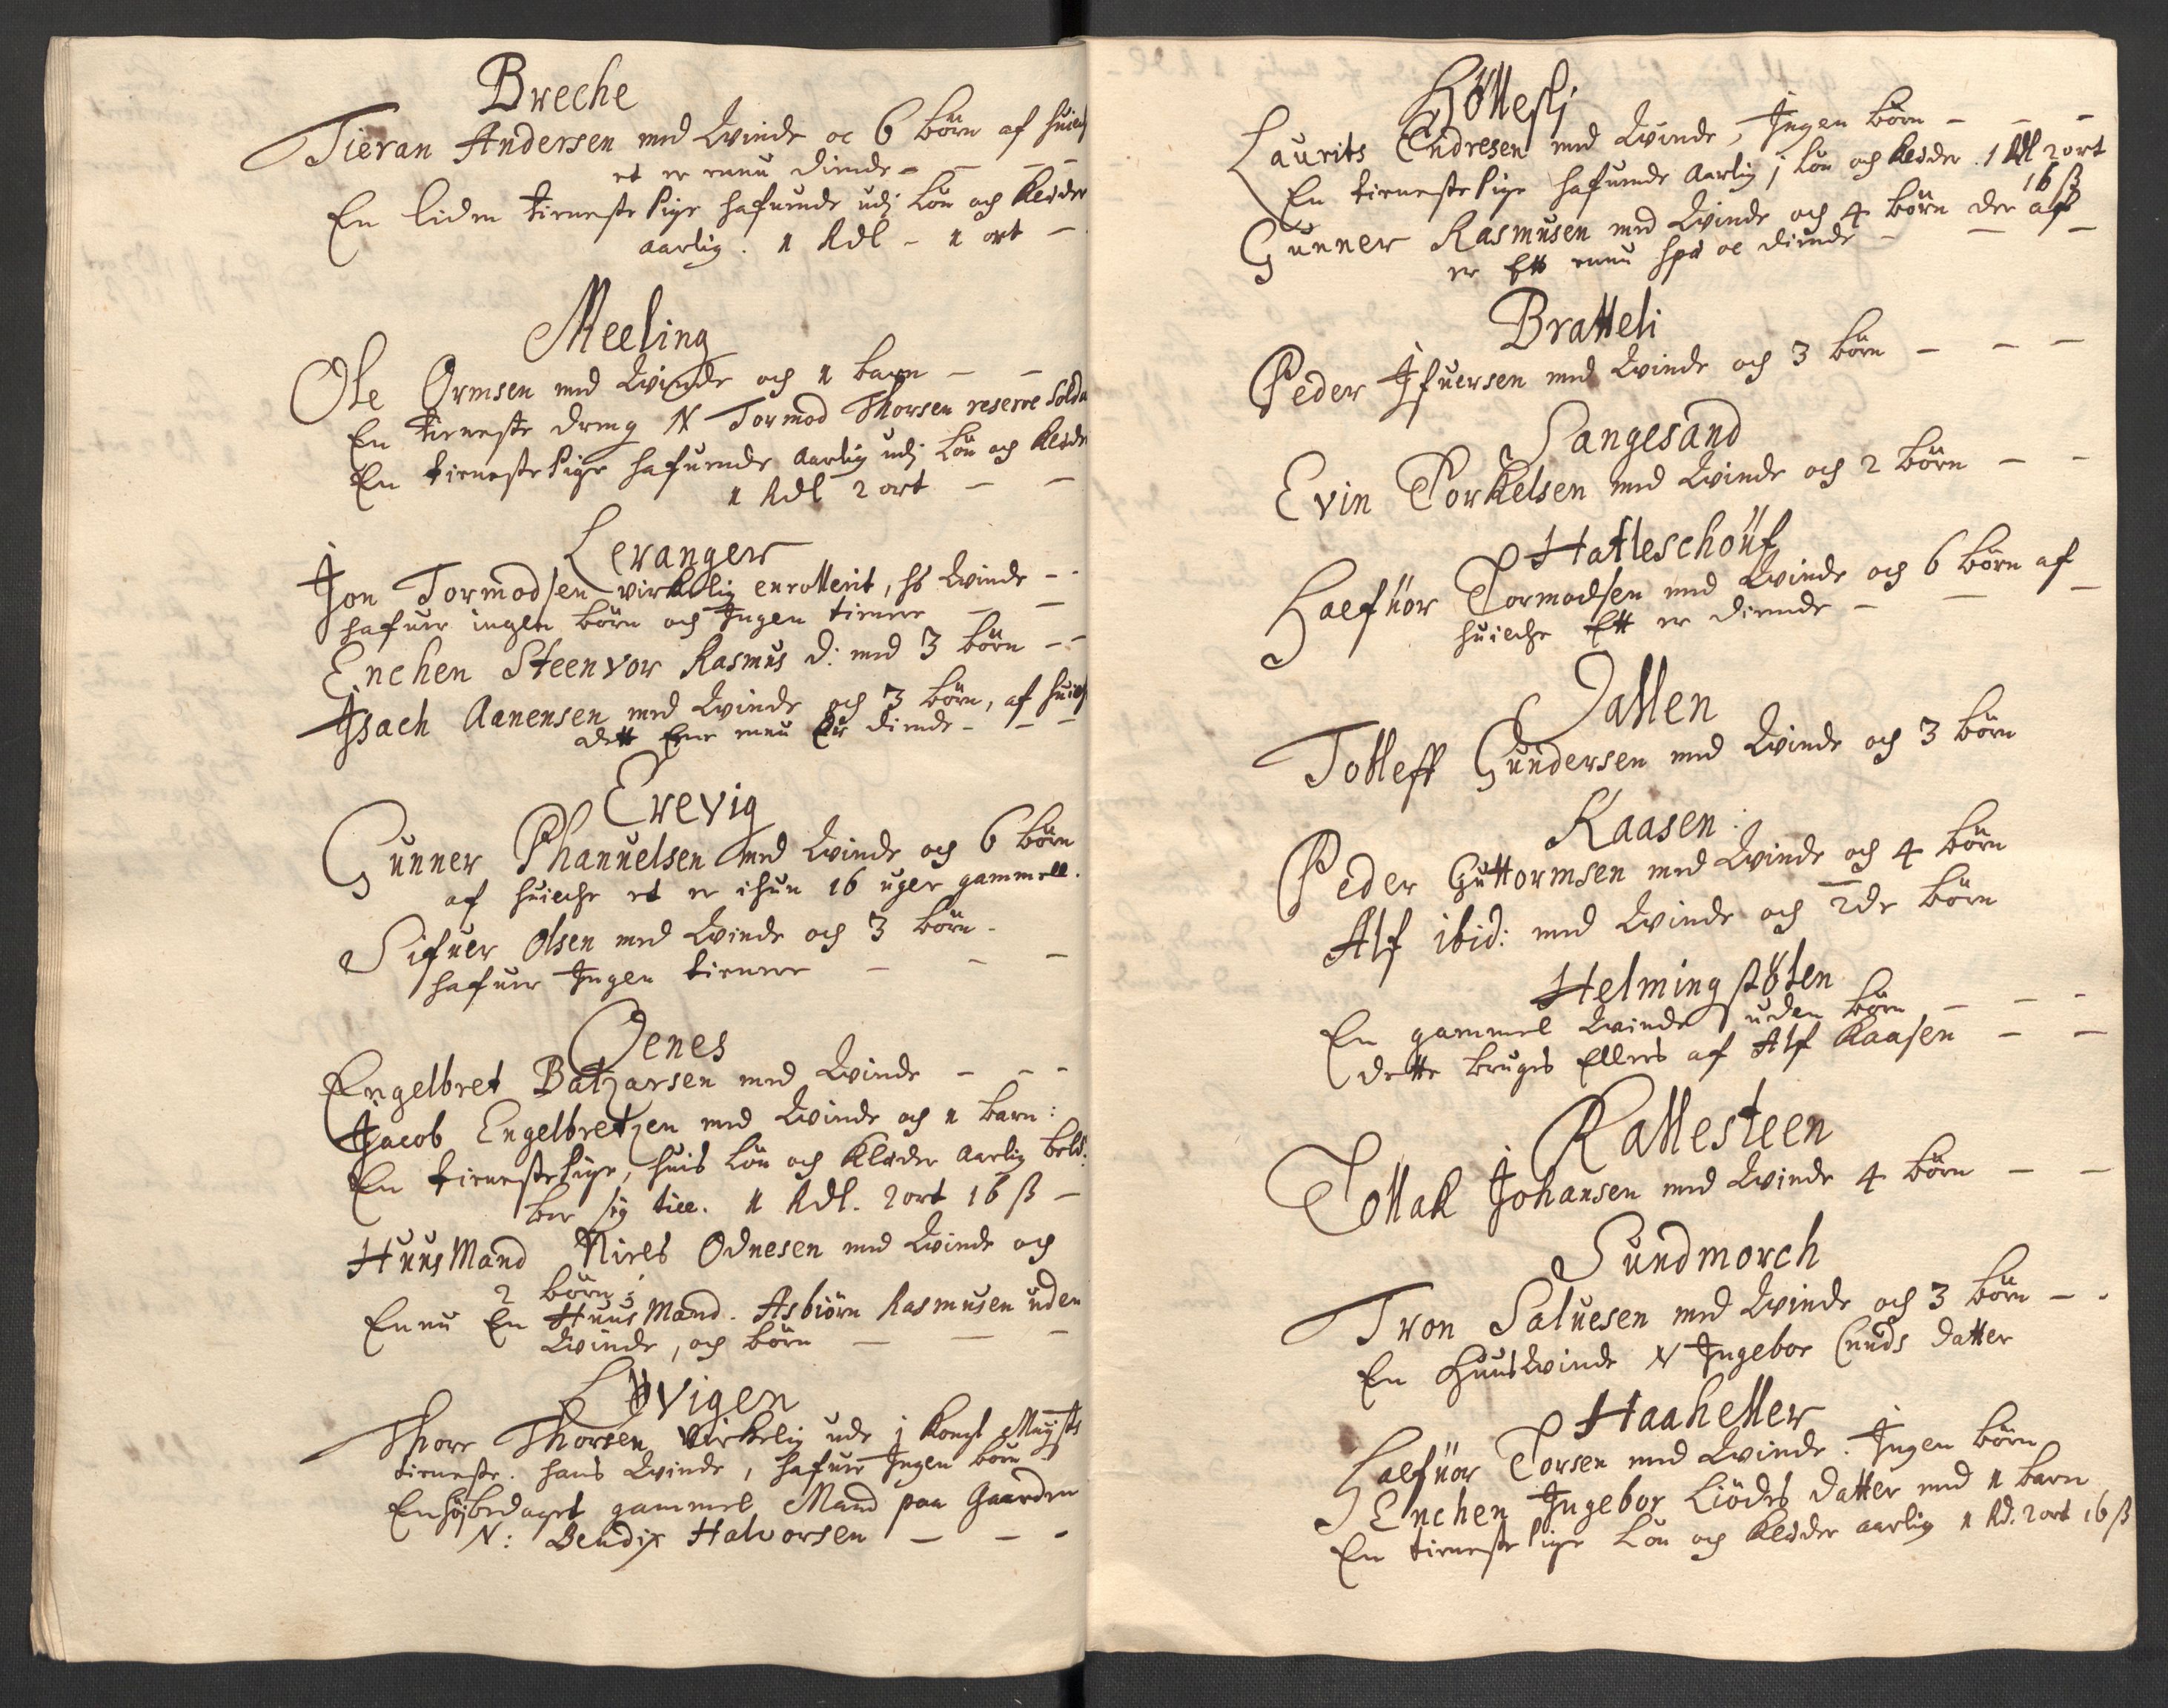 Breche
Tieran Andersen med Qvinde oc 6 börn af huilch
et er ennu diende -
En liden tieneste Pige hafuende udj Lön och Kleder
aarlig. 1 Rdl - 1 ort -
Meeling
Ole Ormsen med Qvinde och 1 barn -
En tieneste dreng N Tormod Thorsen reserve Solda
En tieneste Pige hafuende aarlig udj Lön och Klede
1 Rdl 2 ort -
Levanger
Jon Tormodsen virkelig enrollerit, hs Qvinde -
hafuer ingen börn och Ingen tienere -
Enchen Steenvor Rasmus d: med 3 börn -
Isach Aanensen med Qvinde och 3 börn, af huilch
dett Ene ennu Er diende -
Erevig
Gunner Phanuelsen med Qvinde och 6 börn
af huilche et er ichun 16 uger gammell.
Sifuer Olsen med Qvinde och 3 börn -
hafuer Ingen tienere -
Oenes
Engelbret Batzarsen med Qvinde -
Jacob Engelbretzen med Qvinde och 1 barn:
En tieneste Pige, huis Lön och Kleder aarlig belö:
ber sig till. 1 Rdl. 2 ort 16 ß -
Huus Mand Niels Odnesen med Qvinde och
2 börn;
Ennu En Huus Mand. Asbiörn Rasmusen uden
Qvinde, och börn -
Løvigen
Thore Thorsen virkelig ude j Kongl Mayts
tieneste. hans Qvinde, hafuer Ingen börn
En höjbedaget gammel Mand paa Gaarden
N: Bendix Halvorsen -
Höllesli
Laurits Endresen med Qvinde, Ingen börn -
En tieneste Pige hafuende Aarlig j Lön och Kleder. 1 Rdl 2 ort
16 ß
Gunner Rasmusen med Qvinde och 4 börn der af
er Ett ennu spæ oc diende -
Bratteli
Peder Ifuersen med Qvinde och 3 börn -
Sangesand
Evin Torkelsen med Qvinde och 2 börn -
Hatleschouf
Halfuor Tormodsen med Qvinde och 6 börn af
huilche Ett er diende -
Dallen
Tolleff Gundersen med Qvinde och 3 börn
Kaasen:
Peder Guttormsen med Qvinde och 4 börn
Alf ibid: med Qvinde och 2de börn
Helmingstølen
En gammel Qvinde uden börn -
dette bruges Ellers af Alf Kaasen -
Rallesteen
Tollak Johansen med Qvinde 4 börn -
Sundmorch
Tron Saluesen med Qvinde och 3 börn -
En Huus Qvinde N Ingebor Cnuds datter
Haaheller
Halfuor Torsen med Qvinde. Ingen börn
Enchen Ingebor Liödes datter med 1 barn
En tieneste Pige Lön och Kleder aarlig 1 Rd. 2 ort 16 ß